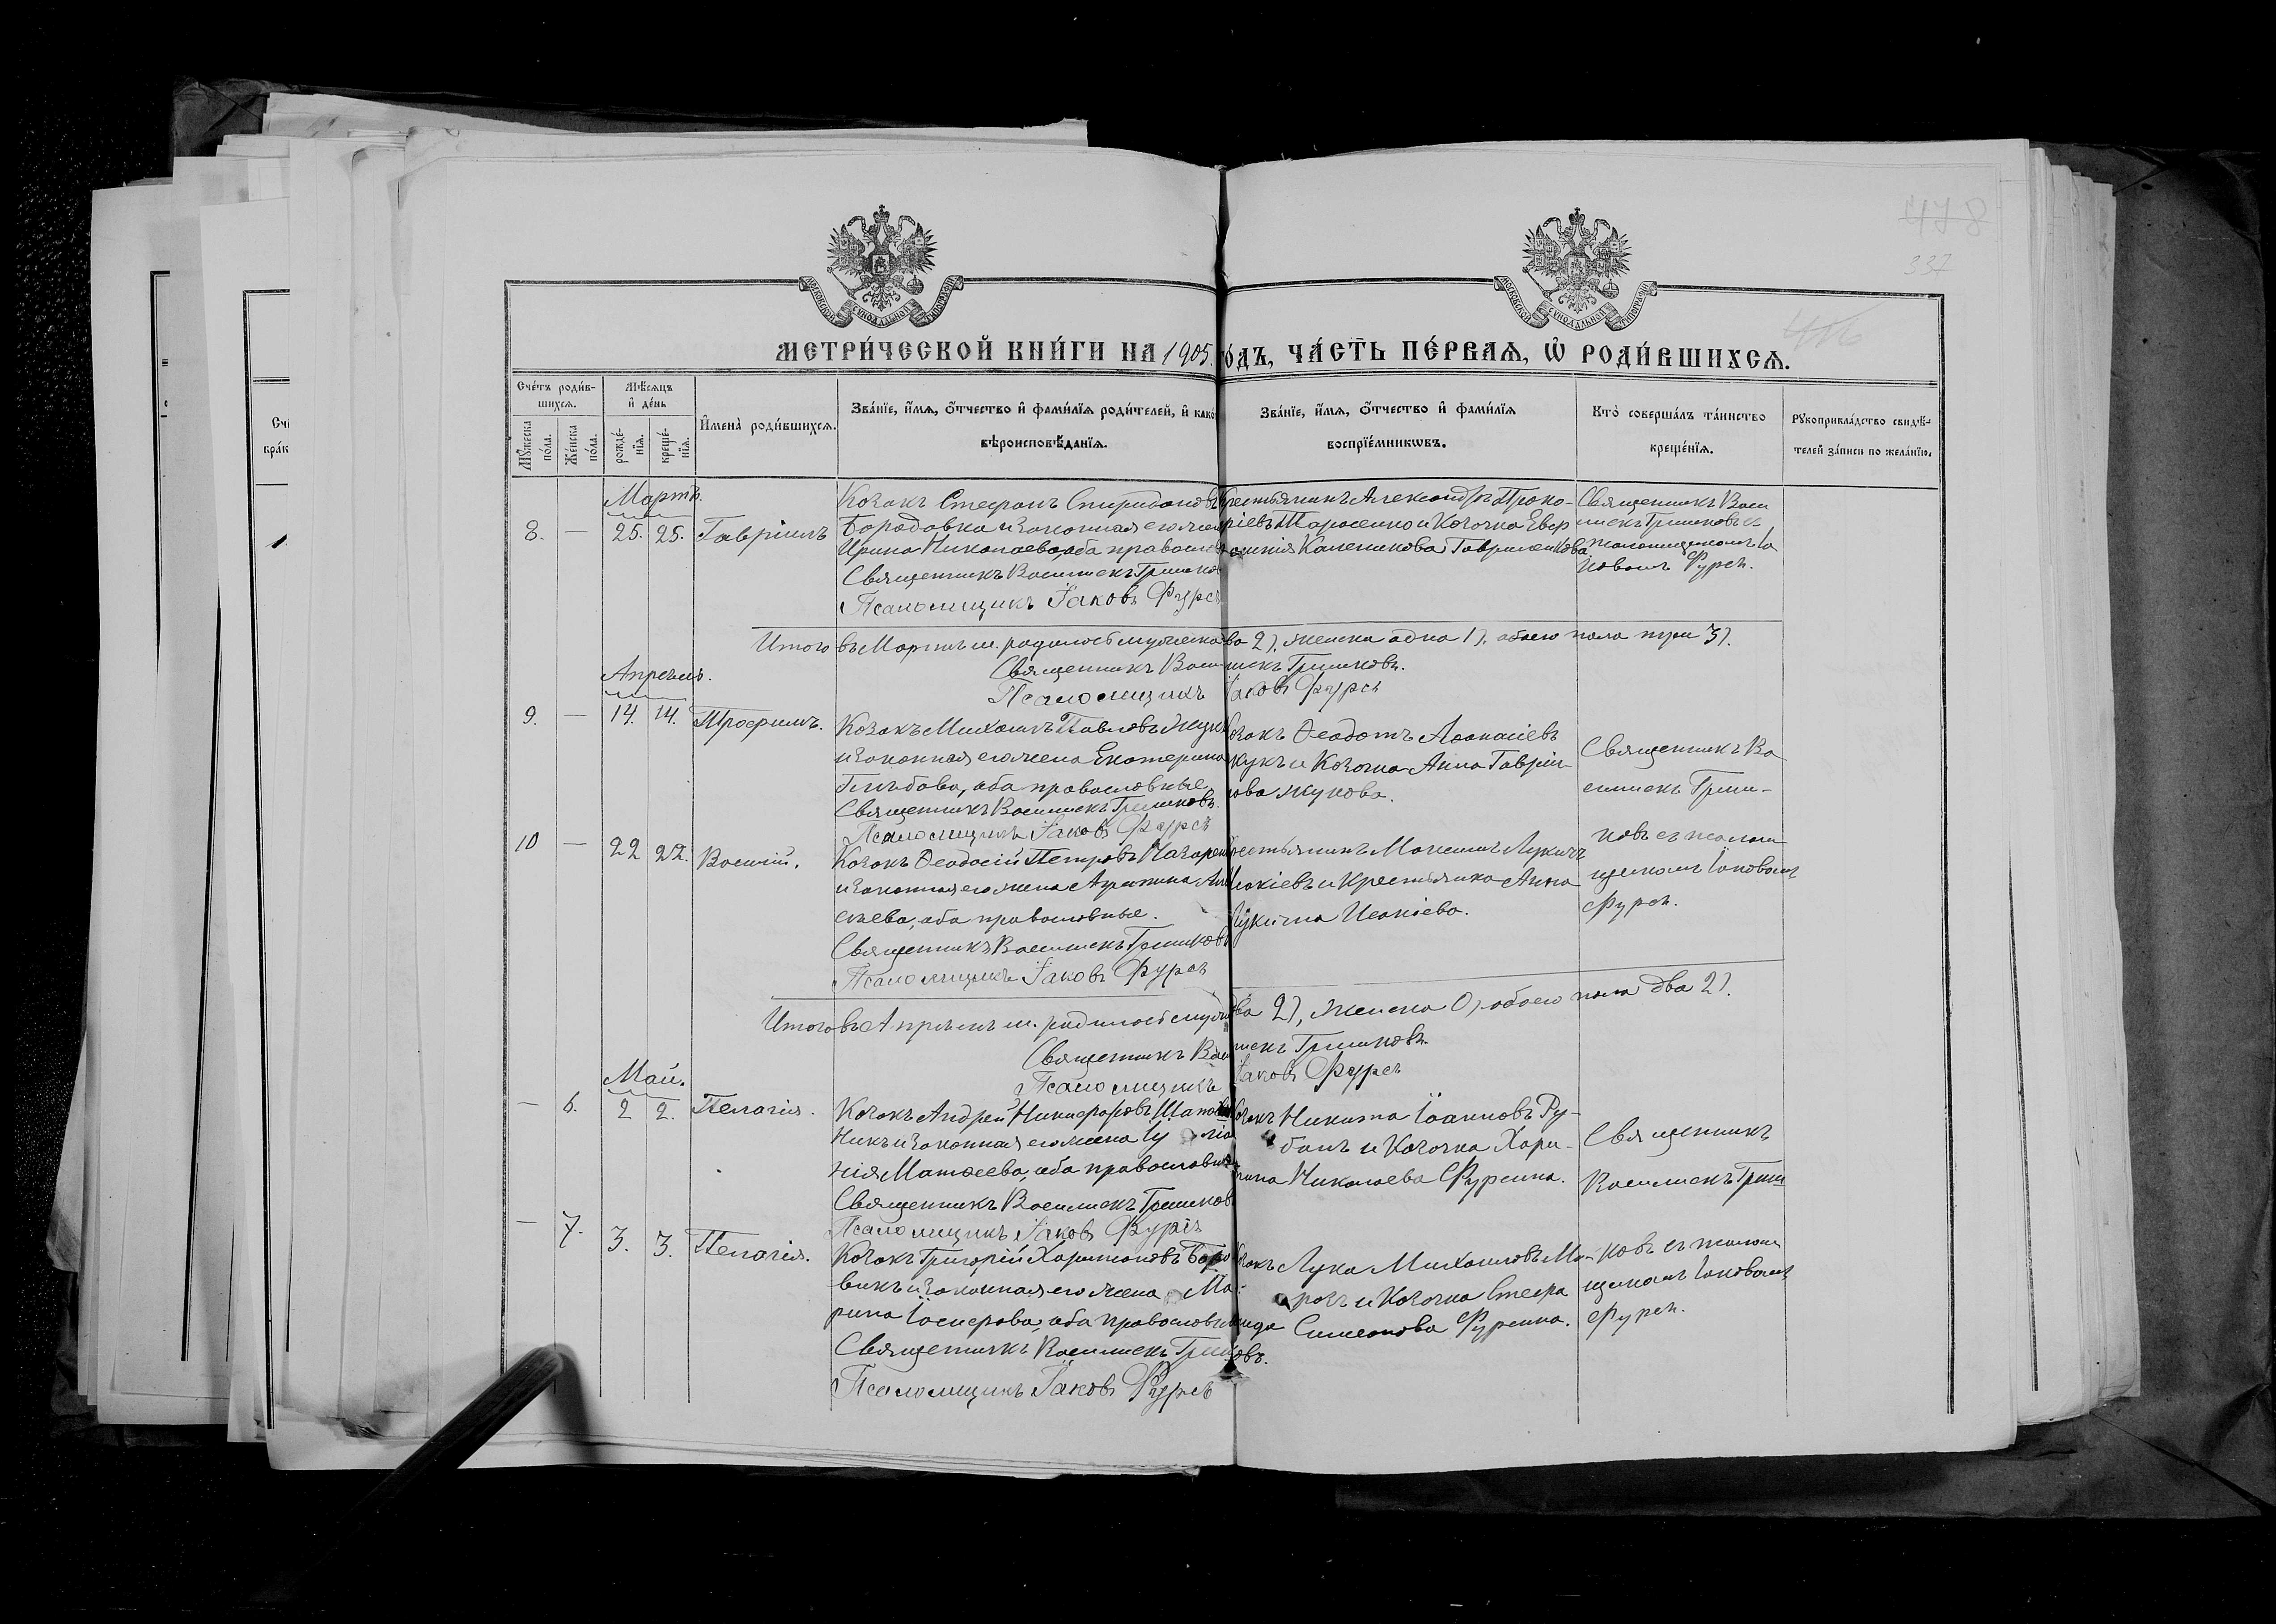 478
337
416
МОСКОВСКОЙ СѴНОДАЛЬНОЙ ТИПОГРАФІИ
МОСКОВСКОЙ СѴНОДАЛЬНОЙ ТИПОГРАФІИ
МЕТРИ́ЧЕСКОЙ КНИ́ГИ НА 1905 ГО́ДЪ, ЧА́СТЬ ПЕ́РВАЯ, Ѡ҆ РОДИ́ВШИХСЯ.
Сче́тъ роди́в-
шихся.
Мѣ́сяцъ
и҆ де́нь
Мꙋ́жеска
по́ла.
Же́нска
по́ла.
рожде́-
нїя.
креще́-
нїя.
И҆мена̀ роди́вшихся.
Зва́нїе, и҆́мя, ѻ҆́тчество и҆ фами́лїя роди́телей, и҆ како
вѣроисповѣ́данїя.
Зва́нїе, и҆́мя, ѻ҆́тчество и҆ фами́лїя
воспрїе́мникѡвъ.
Кто̀ соверша́лъ та́инство
креще́нїя.
Рꙋкоприкла́дство свидѣ́-
телей за́писи по жела́нїю.
Мартъ.
8. — 25. 25. Гавріилъ
Козакъ Стефанъ Спиридоновъ
Бородавка и законная его жена
Ирина Николаева, оба правосл
Священникъ Василискъ Гришков
Псаломщикъ Іаковъ Фурсъ
Крестьянинъ Александръ Проко-
ріевъ Тарасенко и Козачка Евфр
Каленикова Гавриленкова
Священникъ Васи
лискъ Гришковъ съ
псаломщикомъ Іа
ковомъ Фурсъ.
Итого въ Мартѣ м. родилось мужеска два 2), женска одна 1), обоего пола три 3).
Священникъ Василискъ Гришковъ.
Псаломщикъ Іаковъ Фурсъ
Апрѣль.
9. — 14. 14. Трофимъ.
Козакъ Михаилъ Павловъ Жук
и законная его жена Екатерина
Глѣбова, оба православные
Священникъ Василискъ Гришковъ.
Псаломщикъ Іаковъ Фурсъ
Козакъ Ѳеодотъ Аѳанасіевъ
Жукъ и Козачка Анна Гаврії-
лова Жукова.
Священникъ Ва
силискъ Гриш-
ковъ съ псалом
щикомъ Іаковомъ
Фурсъ.
10 — 22 22. Василій.
Козакъ Ѳеодосій Петровъ Назарен
и законная его жена Агрипина Але
сѣева, оба православные.
Священникъ Василискъ Гришковъ
Псаломщикъ Іаковъ Фурсъ
Крестьянинъ Максимъ Лукичъ
Исакіевъ и Крестьянка Анна
Лукична Исакіева.
Итого въ Апрѣлѣ м. родилось мужска два 2), женска 0), обоего пола два 2).
Священникъ Василискъ Гришковъ.
Псаломщикъ Іаковъ Фурсъ
Май.
— 6. 2 2. Пелагія.
Козакъ Андрей Никифоровъ Шапо
никъ и законная его жена Іу ліа
нія Матѳеева, оба православные
Священникъ Василискъ Гришков
Псаломщикъ Іаковъ Фурсъ
Козакъ Никита Іоанновъ Ру-
банъ и Козачка Хари-
тина Николаева Фурсина.
Священникъ
Василискъ Гриш
ковъ съ псалом
щикомъ Іаковомъ
Фурсъ.
— 7. 3. 3. Пелагія.
Козакъ Григорій Харитоновъ Боро
викъ и законная его жена Ма-
рина Іосифова, оба православные
Священникъ Василискъ Гришковъ.
Псаломщикъ Іаковъ Фурсъ
Козакъ Лука Михаиловъ Ма-
роч и Козачка Стефа
нида Симеонова Фурсина.